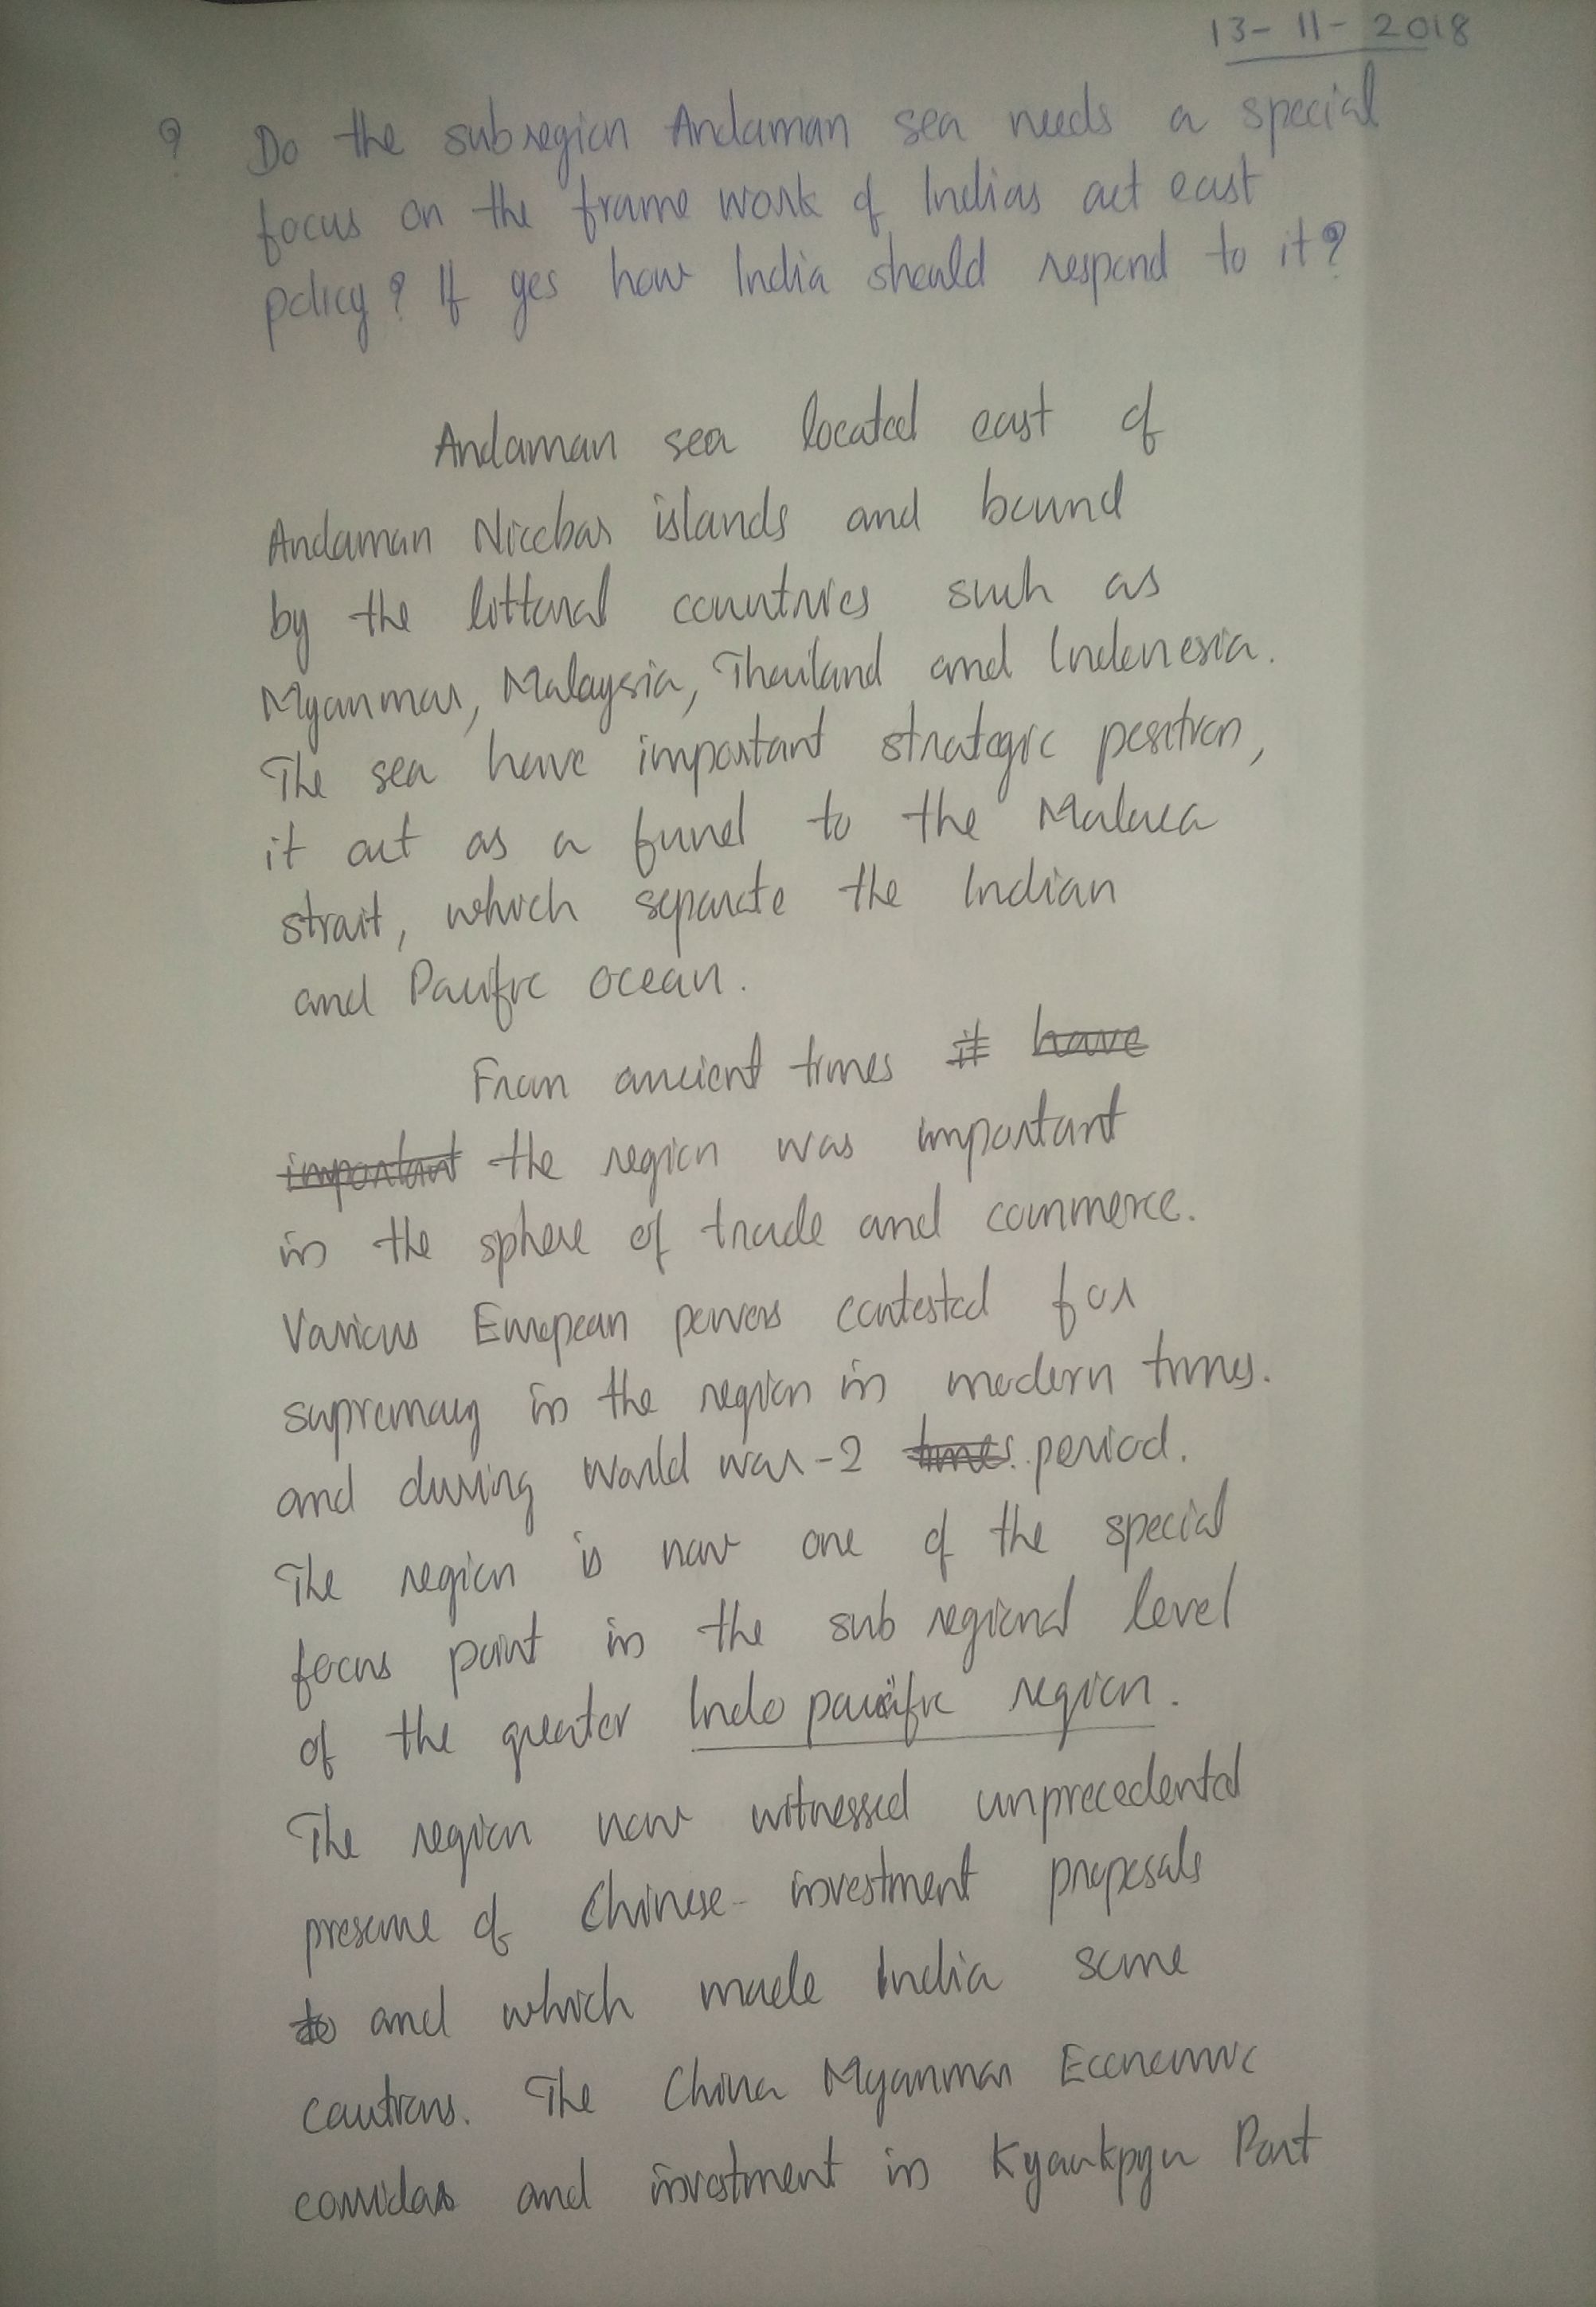 13-11-2018
? Do the subregion Andaman sea needs a special
focus on the frame work of Indias act east
policy? If yes how India should respond to it?
Andaman sea located east of
Andaman Nicobar islands and bound
by the littoral countries such as
Myanmar, Malaysia, Thailand and Indonesia.
The sea have important strategic position,
it act as a funel to the Malaca
strait, which separate the Indian
and Pacific ocean.
From ancient times it have
important the region was important
in the sphere of trade and commerce.
Various European powers contested for
supremacy in the region in modern times.
and during World war-2 times. period.
The region is now one of the special
focus point in the sub regional level
of the greater Indo pacific region.
The region now witnessed unprecedental
presence of Chinese- investment proposals
to and which made India some
cautions. The China Myanmar Economic
corridor and investment in Kyaukpyu Port